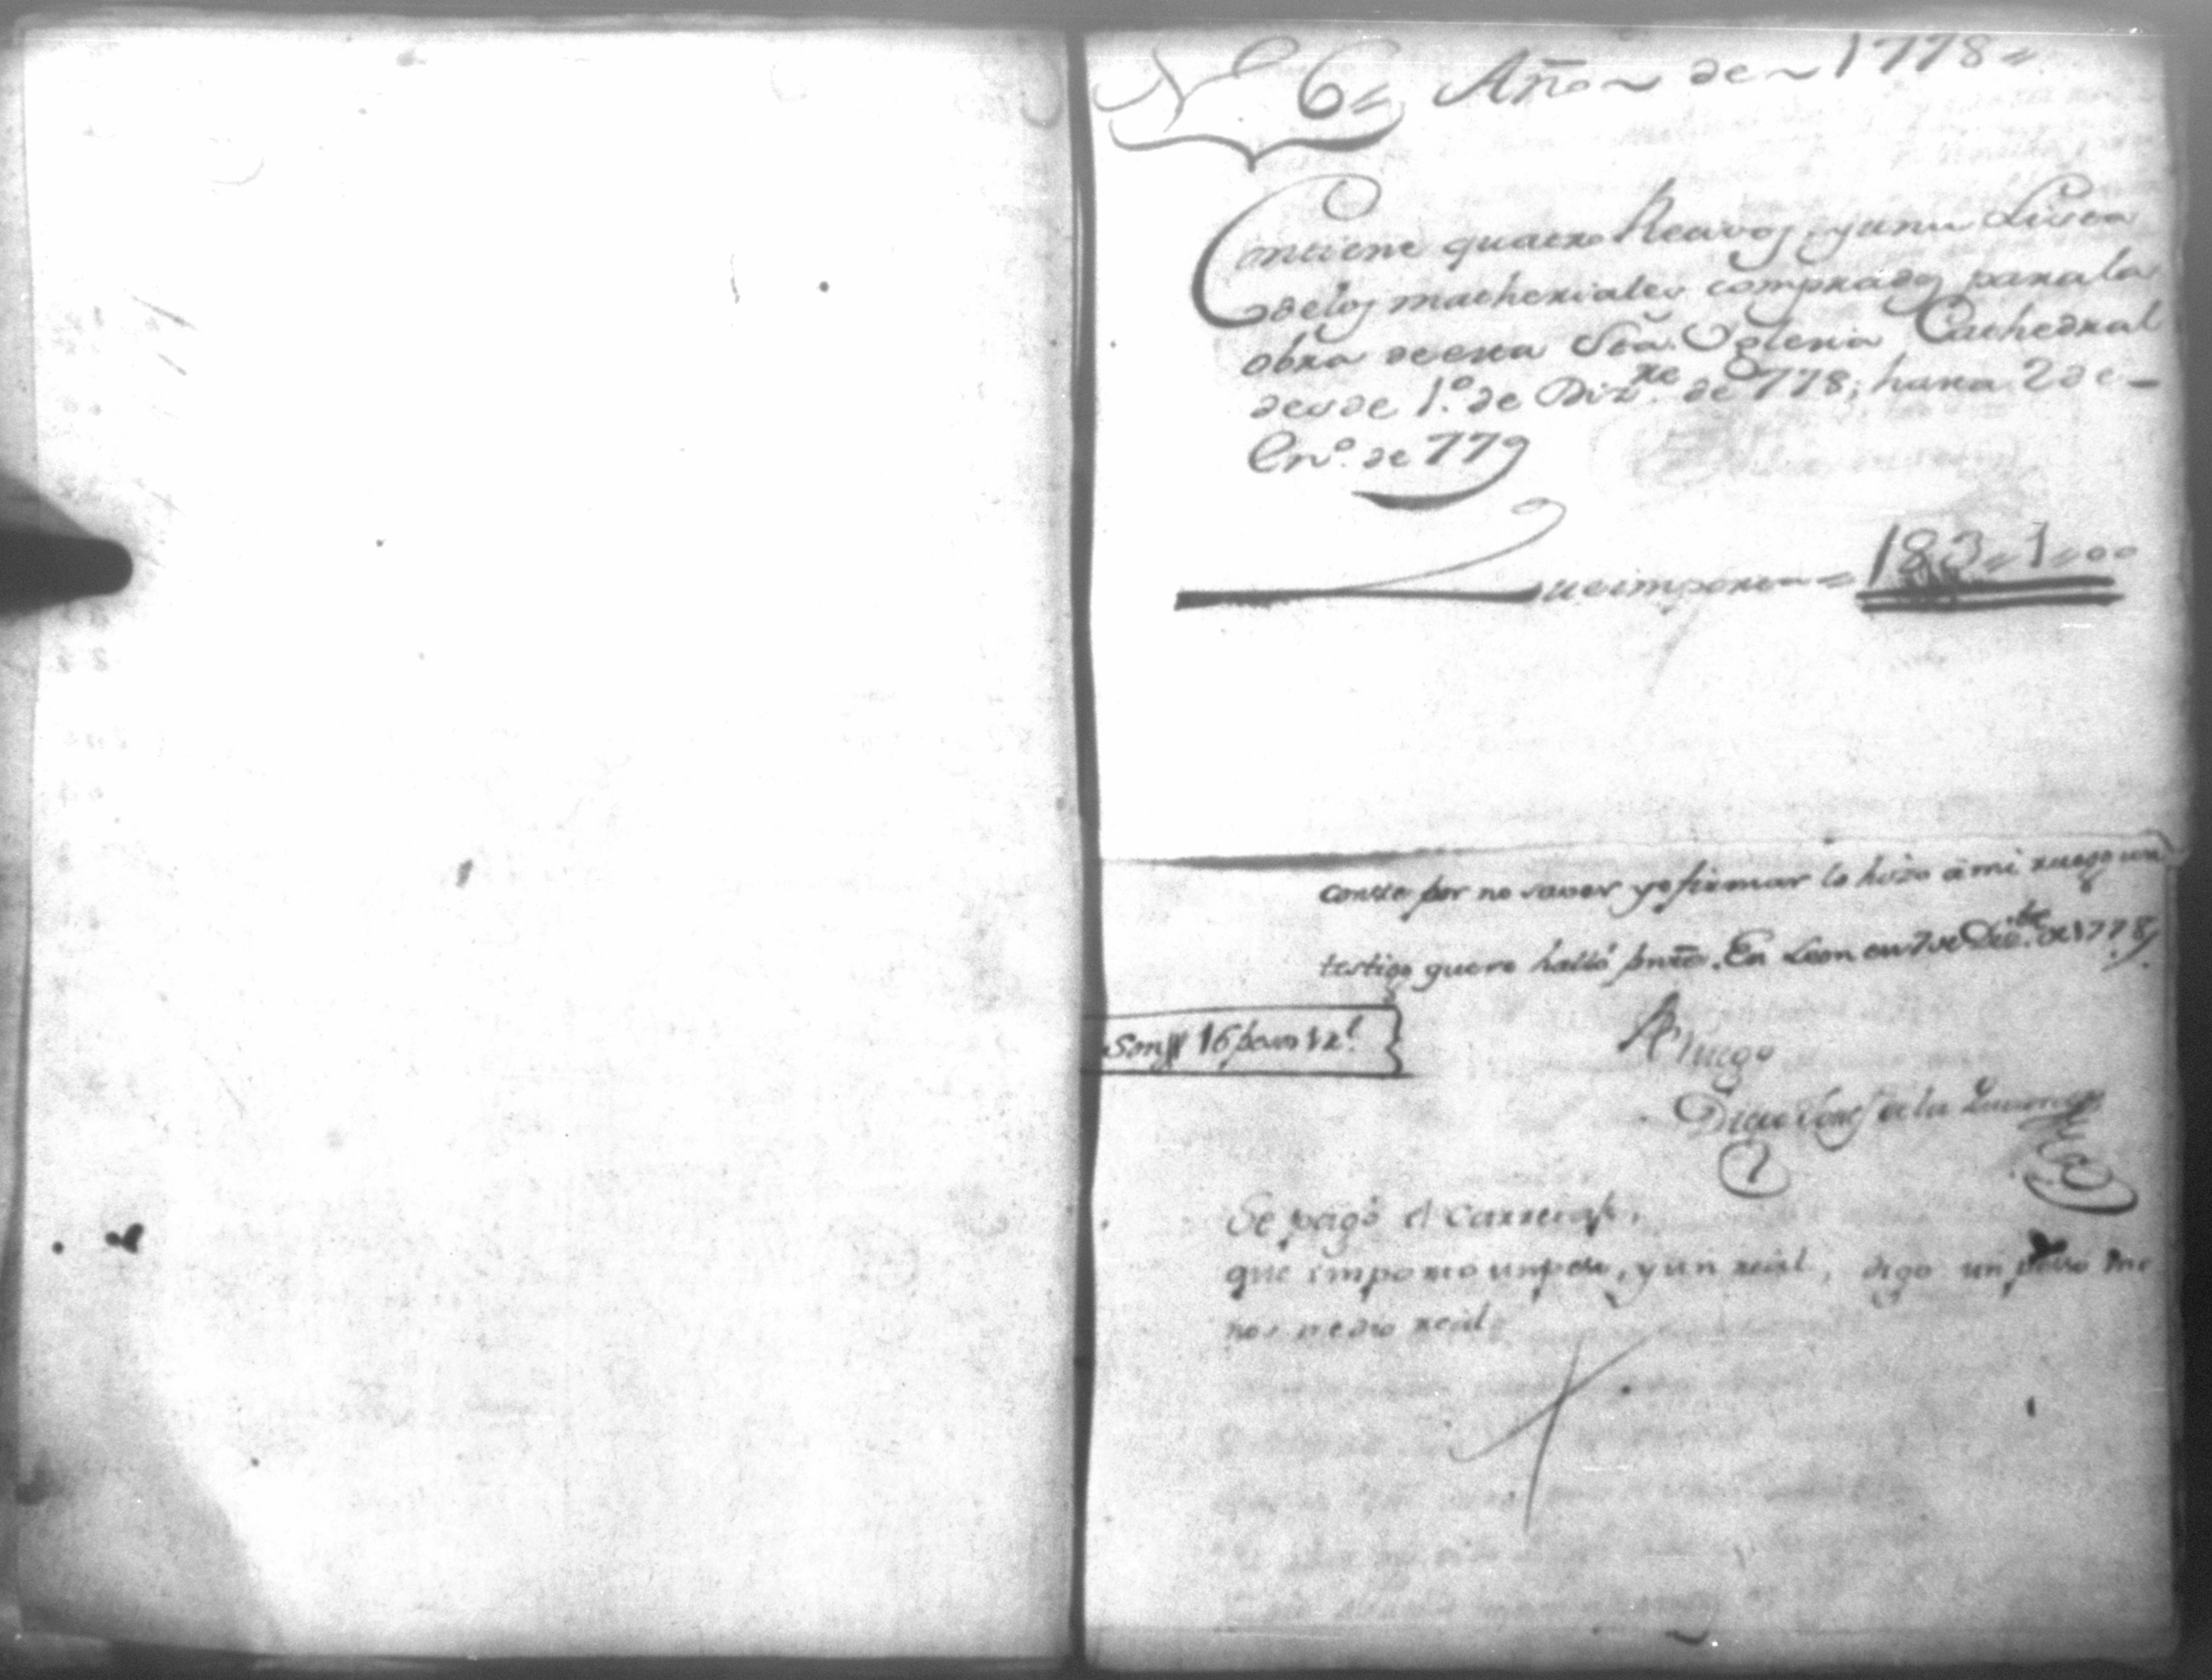 Nº 6 = Año de 1778 =
Contiene quatro Reavos, y una Lista
de los matheriales comprados para la
obra de esta Sta. Yglesia Cathedral
desde 1.º de Diz.re de 778; hasta 2 de
En.º de 779
Que importa = 183 = 1 = 00
conste por no saver yo firmar lo hizo â mi ruego un
testigo que se halló pnte. En Leon en 7 de Dic.bre de 1778.
Son // 16 pesos 1 rl.
A Ruego
Diego de la
Se pagó el carretaje,
que importó un peso, y un real, digo un peso me
nos medio real